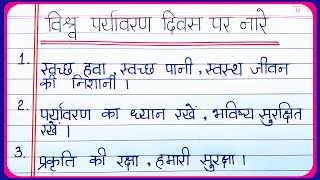 विश्व पर्यावरण दिवस पर नारे
1. स्वच्छ हवा, स्वच्छ पानी, स्वस्थ जीवन
की निशानी।
2. पर्यावरण का ध्यान रखें, भविष्य सुरक्षित
रखें।
3. प्रकृति की रक्षा, हमारी सुरक्षा।